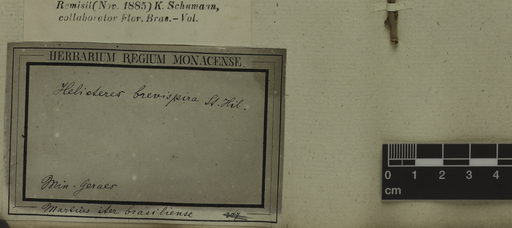 Remisit (Nov. 1885) K. Schumann,
collaborator Flor. Bras. - Vol.
HERBARIUM REGIUM MONACENSE.
Helicteres brevispira St. Hil.
Min - Geraes
Martius iter brasiliense
0 1 2 3 4
cm